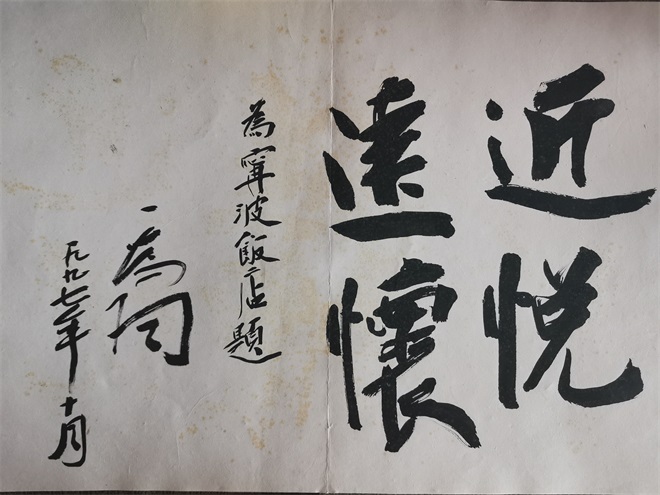 近悦
遠懷
為寧波飯店題
一九九七年十月